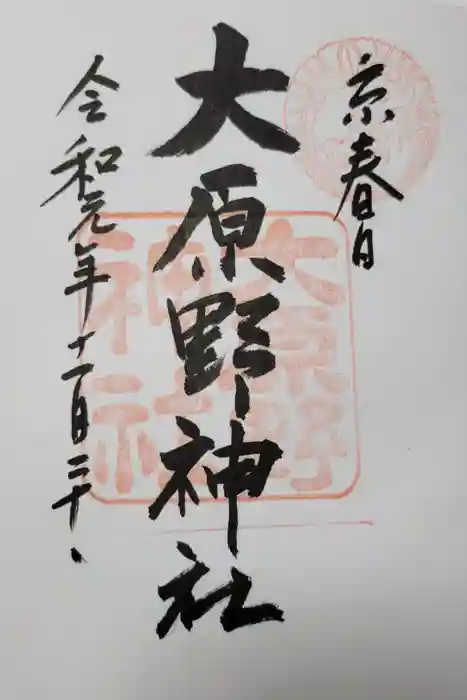 京春日
大原野神社
令和元年十一月三十、
大原野
神社